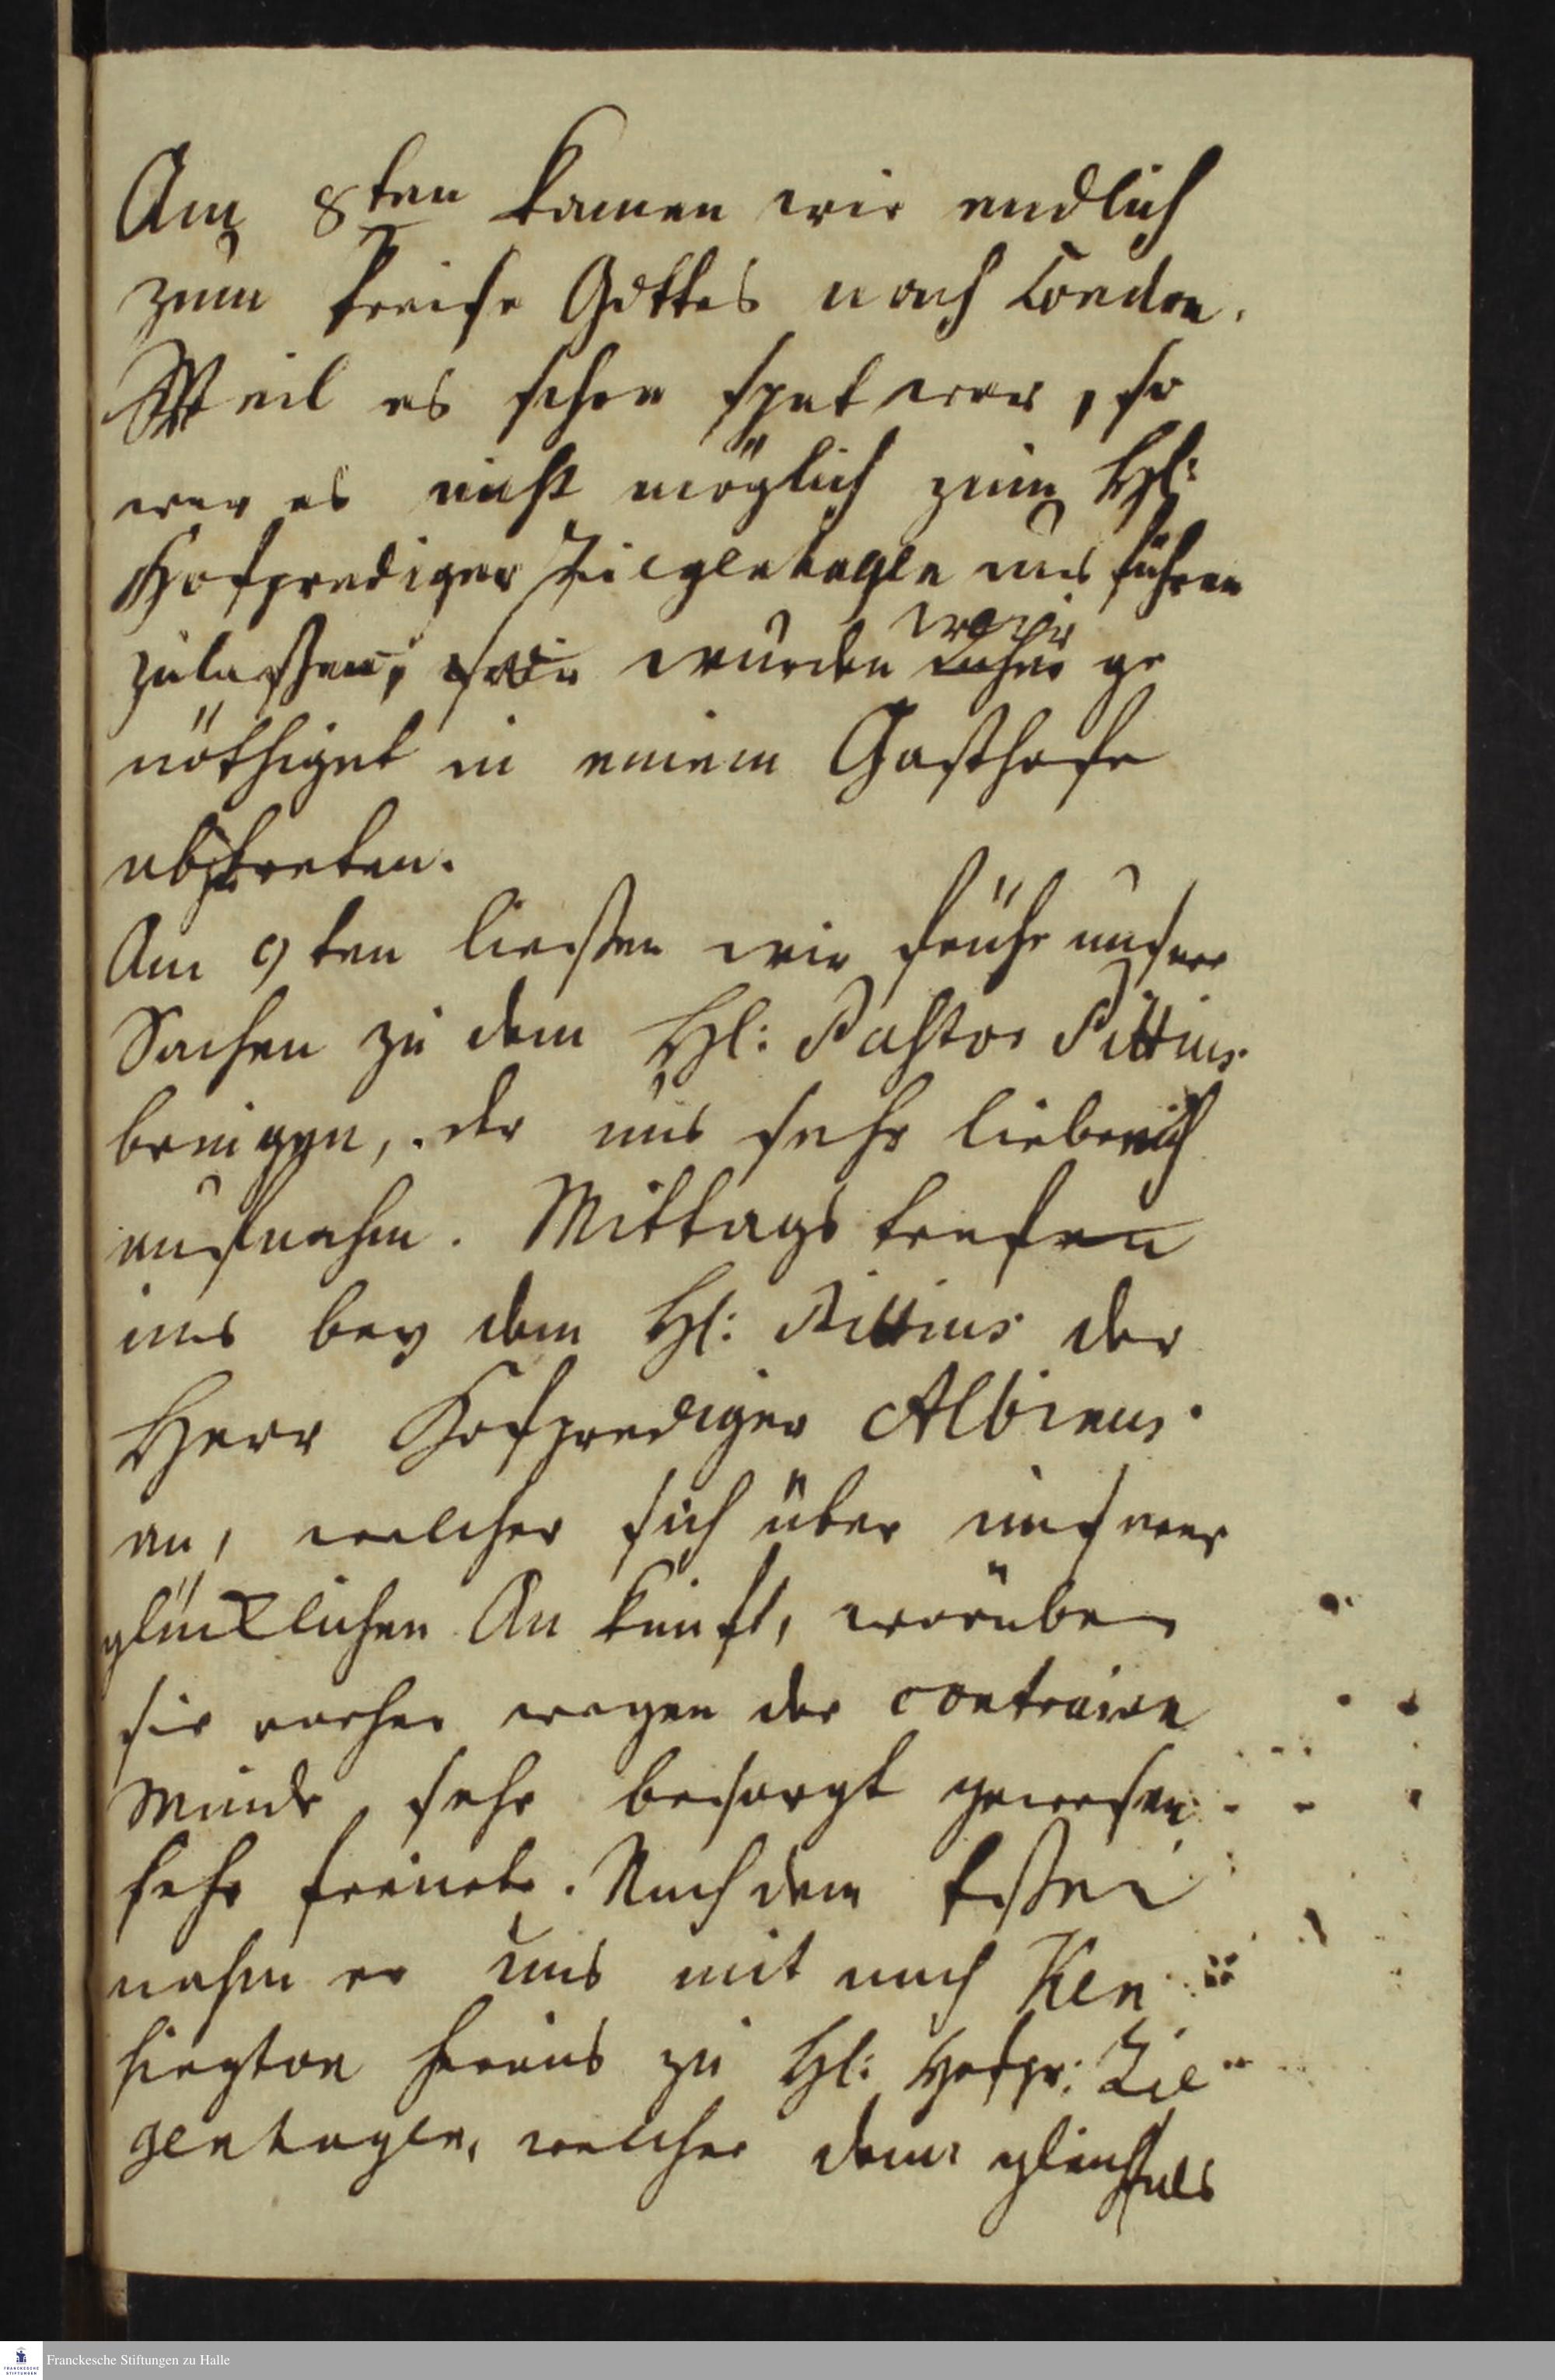 Am 8ten kamen wir endlich
zum Preise Gottes nach London.
Weil es schon spat war, so
war es nicht möglich zum Hl:
Hofprediger Ziegenhagen uns führen
zulaßen, wurden wir ge
nöthiget in einem Gasthofe
abzutreten.
Am 9ten ließen wir frühe unsere
Sachen zu dem Hl: Pastor Pittius
bringen, der uns sehr liebreich
aufnahm. Mittags trafen
uns bey dem Hl: Pittius der
Herr Hofprediger Albinus
an, welcher sich über unsere
glücklichen Ankunft, worüber
sie vorher wegen der contrairen
Winde sehr besorgt gewesen
sehr freuete. Nach dem Eßen
nahm er uns mit nach Ken
sington heraus zu Hl: Hofpr: Zie
genhagen, welcher denn gleichfals
Franckesche Stiftungen zu Halle